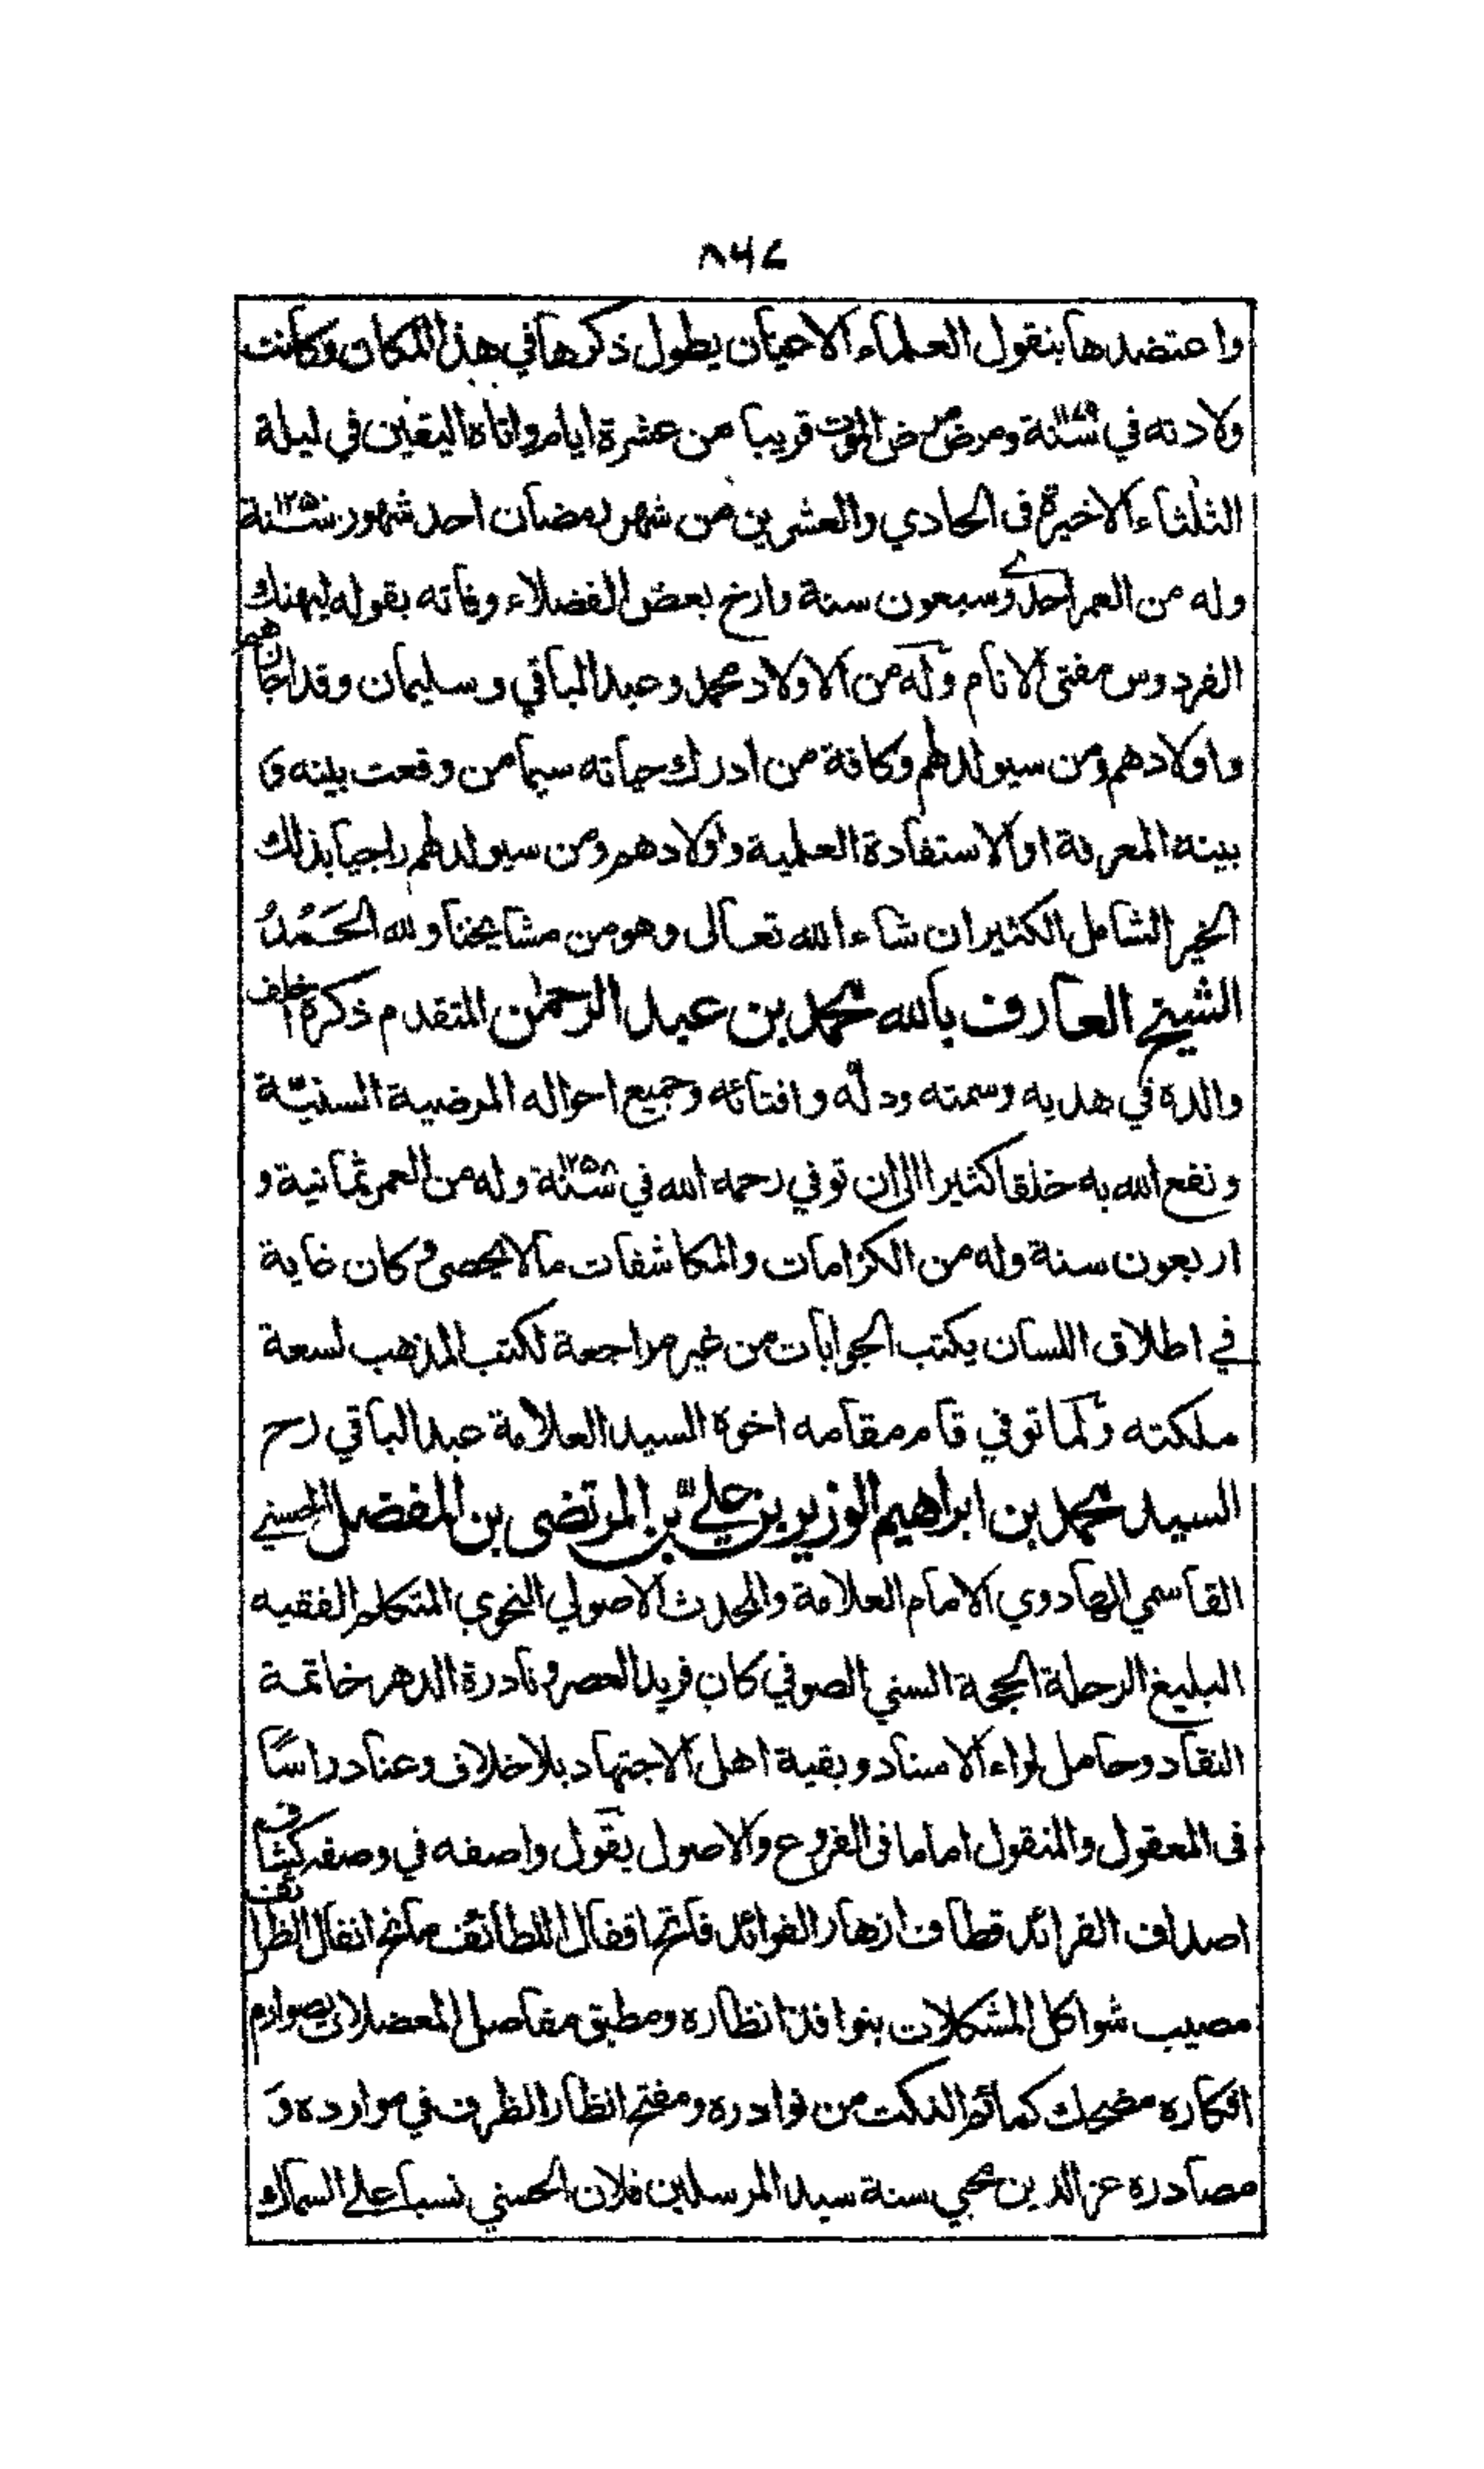 ٨٦٧
واعتضدها بنقول العلماء الاعيان يطول ذكرها في هذا المكان وكانت
ولادته في سنة ١١٧٩ ومرض مرض الموت قريبا من عشرة ايام واتاه اليقين في ليلة
الثلثاء الاخيرة في الحادي والعشرين من شهر رمضان احد شهور سنة ١٢٥٠
وله من العمر احدى وسبعون سنة وارخ بعض الفضلاء وفاته بقوله ليهنك
الفردوس مفتى الانام وله من الاولاد محمد وعبد الباقي وسليمان وقد اجازهم
واولادهم ومن سيولد لهم وكافة من ادرك حياته سيما من وقعت بينه و
بينه المعرفة او الاستفادة العلمية واولادهم ومن سيولد لهم راجيا بذلك
الخير الشامل الكثير ان شاء الله تعالى وهو من مشايخنا ولله الحَمْدُ
الشيخ العارف بالله محمد بن عبد الرحمن المتقدم ذكره خلف
والده في هديه وسمته ودله وافتائه وجميع احواله المرضية السنيّة
ونفع الله به خلقا كثيرا الى ان توفي رحمه الله في سنة ١٢٥٨ وله من العمر ثمانية و
اربعون سنة وله من الكرامات والمكاشفات مالا يحصى وكان غاية
في اطلاق اللسان يكتب الجوابات من غير مراجعة لكتب المذهب لسعة
ملكته ولما توفي قام مقامه اخوه السيد العلامة عبد الباقي رح
السيد محمد بن ابراهيم الوزير بن علي بن المرتضى بن المفضل الحسني
القاسمي الهادوي الامام العلامة والمحدث الاصولي النحوي المتكلم الفقيه
البليغ الرحلة الحجة السني الصوفي كان فريد العصر ونادرة الدهر خاتمة
النقاد وحامل لواء الاسناد وبقية اهل الاجتهاد بلا خلاف وعناد راسًا
في المعقول والمنقول اماما في الفروع والاصول يقول واصفه في وصفه كشاف
اصداف الفرائد قطاف ازهار الفوائد فاتح اقفال اللطائف مانح انفال الظرائف
مصيب شواكل المشكلات بنوافذ انظاره ومطبق مفاصل المعضلات بصوارم
افكاره مضحك كمائم النكت من نوادره ومفتح انظار الظرف في موارده و
مصادره عز الدين محيي سنة سيد المرسلين فلان الحسني نسبا على السماك